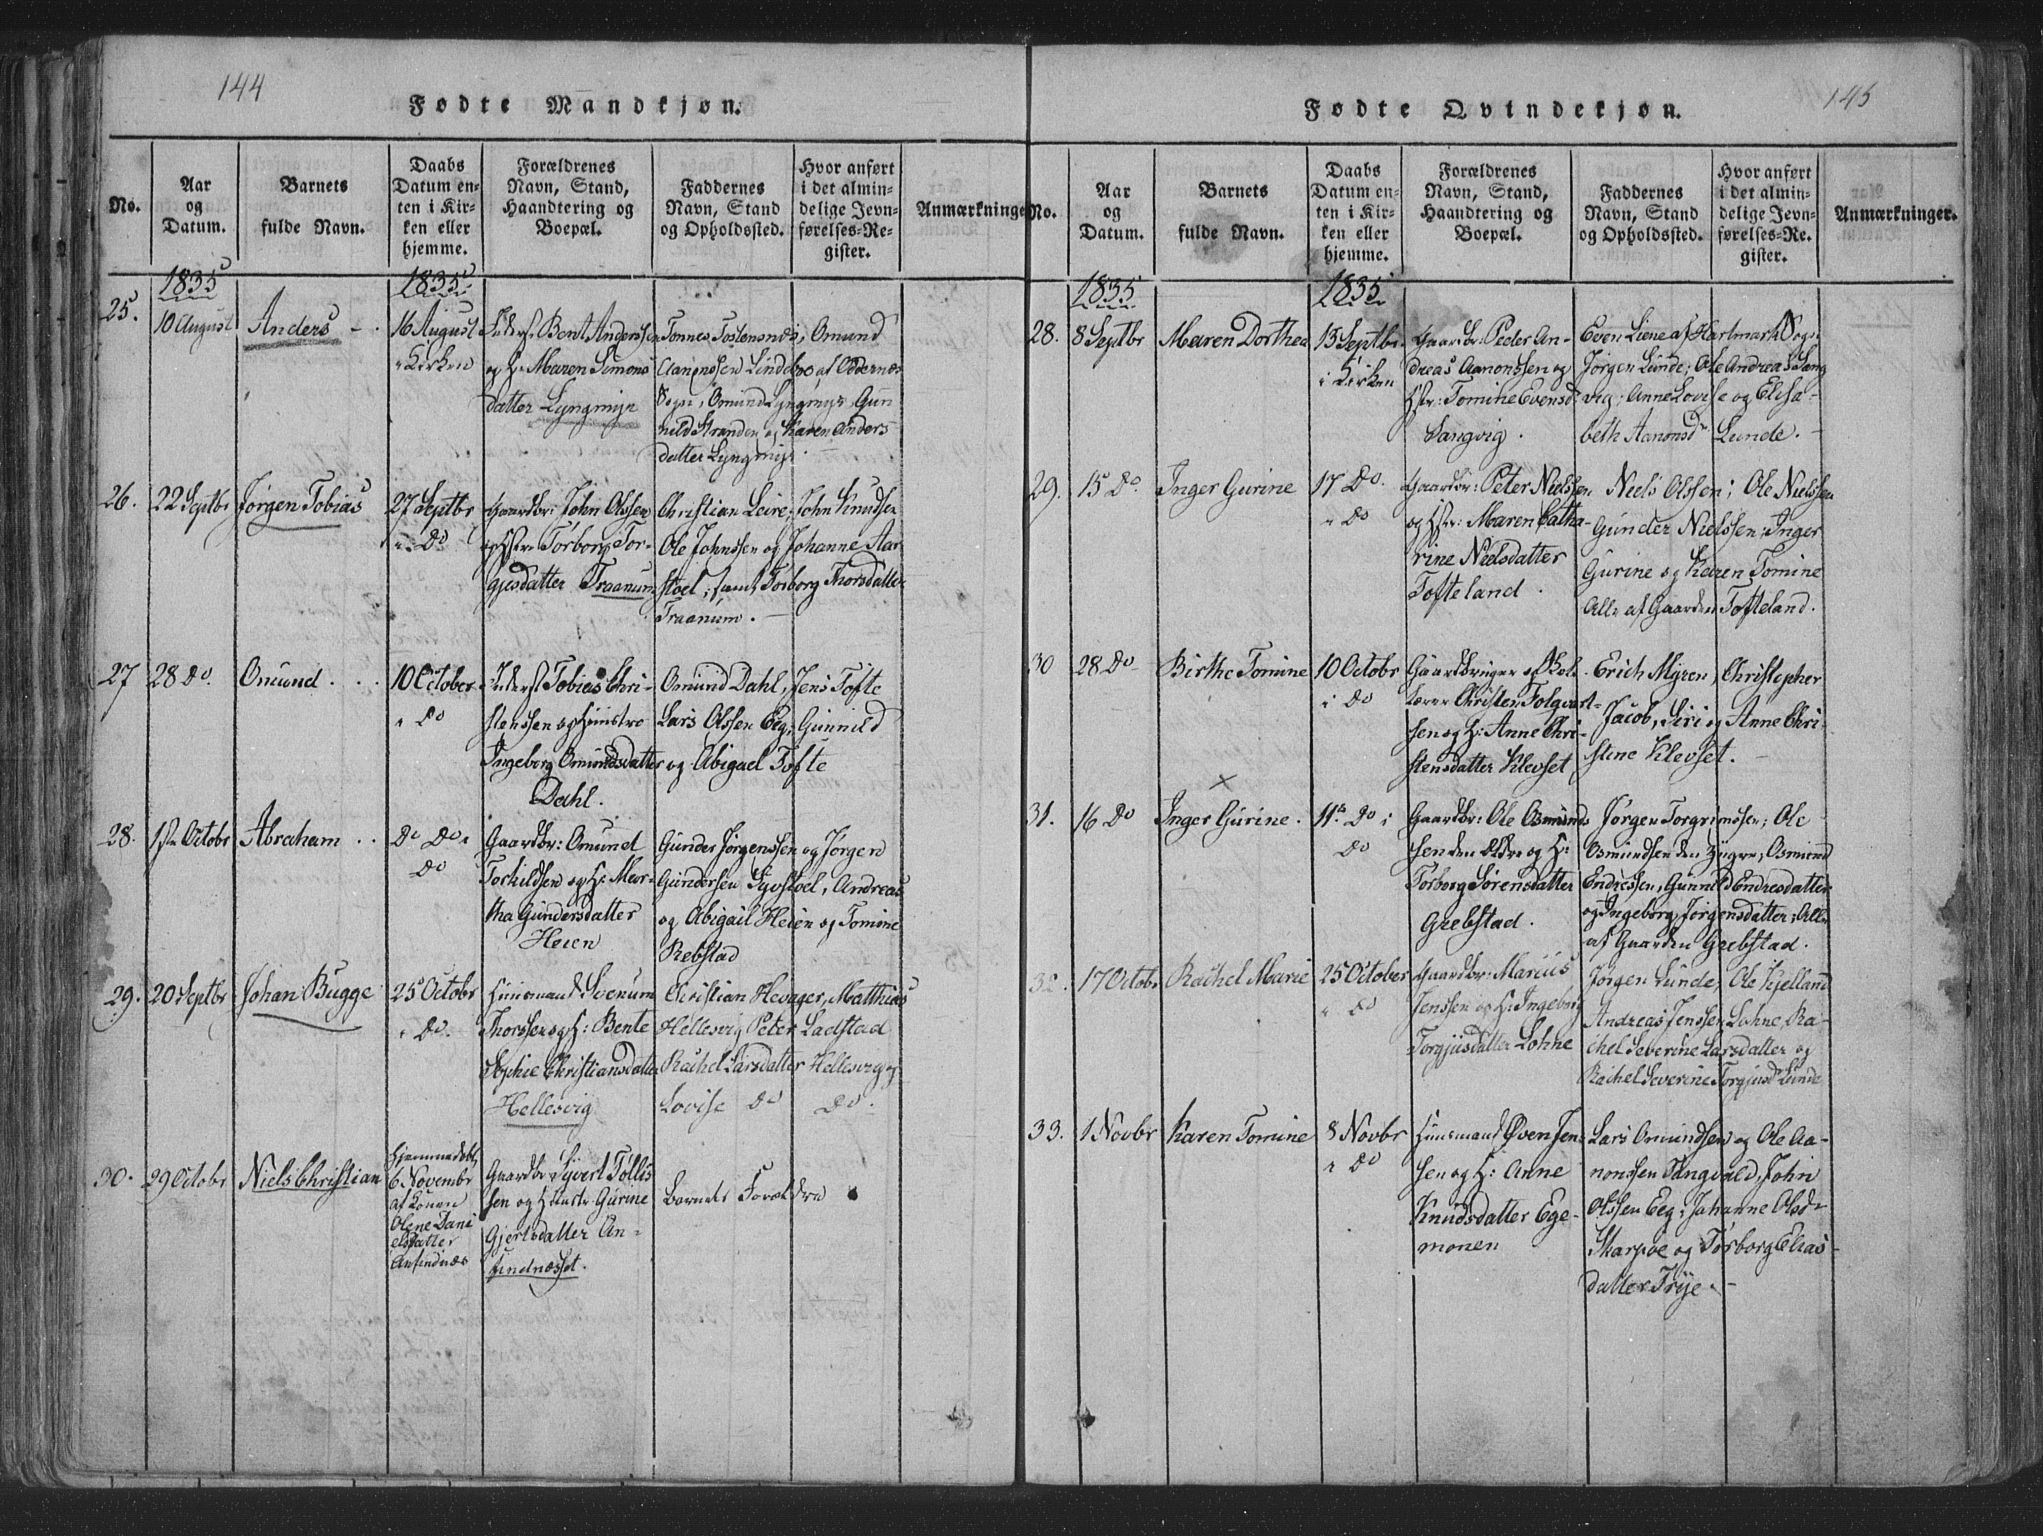 144
Fødte Mandkjøn.
No.
Aar
og
Datum.
Barnets
fulde Navn.
Daabs
Datum en-
ten i Kir-
ken eller
hjemme.
Forældrenes
Navn, Stand,
Haandtering og
Boepæl.
Faddernes
Navn, Stand
og Opholdssted.
Hvor anført
i det almin-
delige Jevn-
førelses-Re-
gister.
Anmærkninger
1835
1835
25.
10 August
Anders
16 August
i Kirken
Inderst Bent Anderssen
og H: Maren Simons
datter Lyngmyr
Tønnes Tostensnæs; Omund
Aanonssen Lindebo af Oddernæs
Sogn; Omund Lyngmyr, Gun
nild Stranden og Karen Anders
datter Lyngmyr.
26.
22 Septbr
Jørgen Tobias
27 Septbr
i Do
Gaardbr: John Olssen
og Hstr: Torborg Tor-
gjesdatter Traanum
Christian Leire; John Knudsen
Ole Johnssen og Johanne Aar
stoel; samt Torborg Thorsdatter
Traanum.
27
28 Do
Omund
10 October
i Do
Inderst Tobias Chri-
stenssen og Hunstro
Ingeborg Omundsdatter
Dahl.
Omund Dahl, Jens Tofte
Lars Olssen Eeg; Gunnild
og Abigael Tofte
28.
1ste Octobr
Abraham
Do Do i
Do
Gaardbr: Omund
Torkildsen og H: Mar-
tha Gundersdatter
Heien
Gunder Jørgenssen og Jørgen
Gundersen Gjvstoel, Andreas
og Abigail Heien og Tomine
Rebstad
29.
20 Septbr
Johan Bugge
25 Octobr
i Do.
Huusmand Svenum
Thorssen og H: Bente
Sophie Christiansdatter
Hellesvig
Christian Hevager, Matthias
Hellesvig Peter Ladstad
Rachel Larsdatter Hellesvig og
Lovise Do Do.
30.
29 Octobr
Niels Christian
Hjemmedøbt
6 Novembr
af Konen
Olene Dani
elsdatter
Anfindnæs
Gaardbr Syvert Tollis
sen og Hustr: Gurine
Gjertsdatter An-
findnæsset.
Barnets Forældre
145
Fødte Qvindekjøn.
No.
Aar
og
Datum.
Barnets
fulde Navn.
Daabs
Datum en-
ten i Kir-
ken eller
hjemme.
Forældrenes
Navn, Stand,
Haandtering og
Boepæl.
Faddernes
Navn, Stand
og Opholdssted.
Hvor anført
i det almin-
delige Jevn-
førelses-Re-
gister.
Anmærkninger.
1835
1835
28.
8 Septbr
Maren Dorthea
13 Septbr
i Kirken
Gaardbr: Peder An-
dreas Aanonssen og
Hstr: Tomine Evensd
Sangvig.
Even Liene af Hartmark Sogn
Jørgen Lunde; Ole Andreas Sang
vig; Anne Lovise og Elisa-
beth Aanonsdr Lunde.
29.
15 Do
Inger Gurine
17 Do.
i Do
Gaardbr: Peter Nielssen
og Hstr: Maren Catha-
rine Nielsdatter
Tofteland.
Niels Olssen; Ole Nielssen
Gunder Nielssen; Inger
Gurine og Karen Tomine
Alle af Gaarden Tofteland.
30
28 Do
Birthe Tomine
10 Octobr
i Do
Gaardbruger og Skol-
lærer Christen Folqvart-
sen og H: Anne Chri-
stensdatter Klevset
Erich Myren, Christopher
Jacob, Siri og Anne Chri-
stine Klevset.
×
31.
16 Do
Inger Gurine.
11te Do i
Do
Gaardbr: Ole Osmunds
sen den Ældre og H:
Torborg Sørensdatter
Grebstad.
Jørgen Torgrimssen; Ole
Osmundsen den Yngre; Osmund
Endressen, Gunnild Endresdatter
og Ingeborg Jørgensdatter; Alle
af Gaarden Grebstad.
32.
17 Octob:
Rachel Marie
25 October
i Do
Gaardbr: Marius
Jenssen og H: Ingeborg
Torgjusdatter Lohne
Jørgen Lunde, Ole Kjelland
Andreas Jenssen Lohne, Ra-
chel Severine Larsdatter og
Rachel Severine Torgjusdr Lunde
33.
1 Novbr
Karen Tomine
8 Novbr
i Do
Huusmand Øven Jen
sen og H: Anne
Knudsdatter Ege-
monen
Lars Omundsen og Ole Aa-
nonssen Tangvald, John
Olssen Eeg; Johanne Olsdr
Skarpoe og Torborg Elias-
datter Trye.